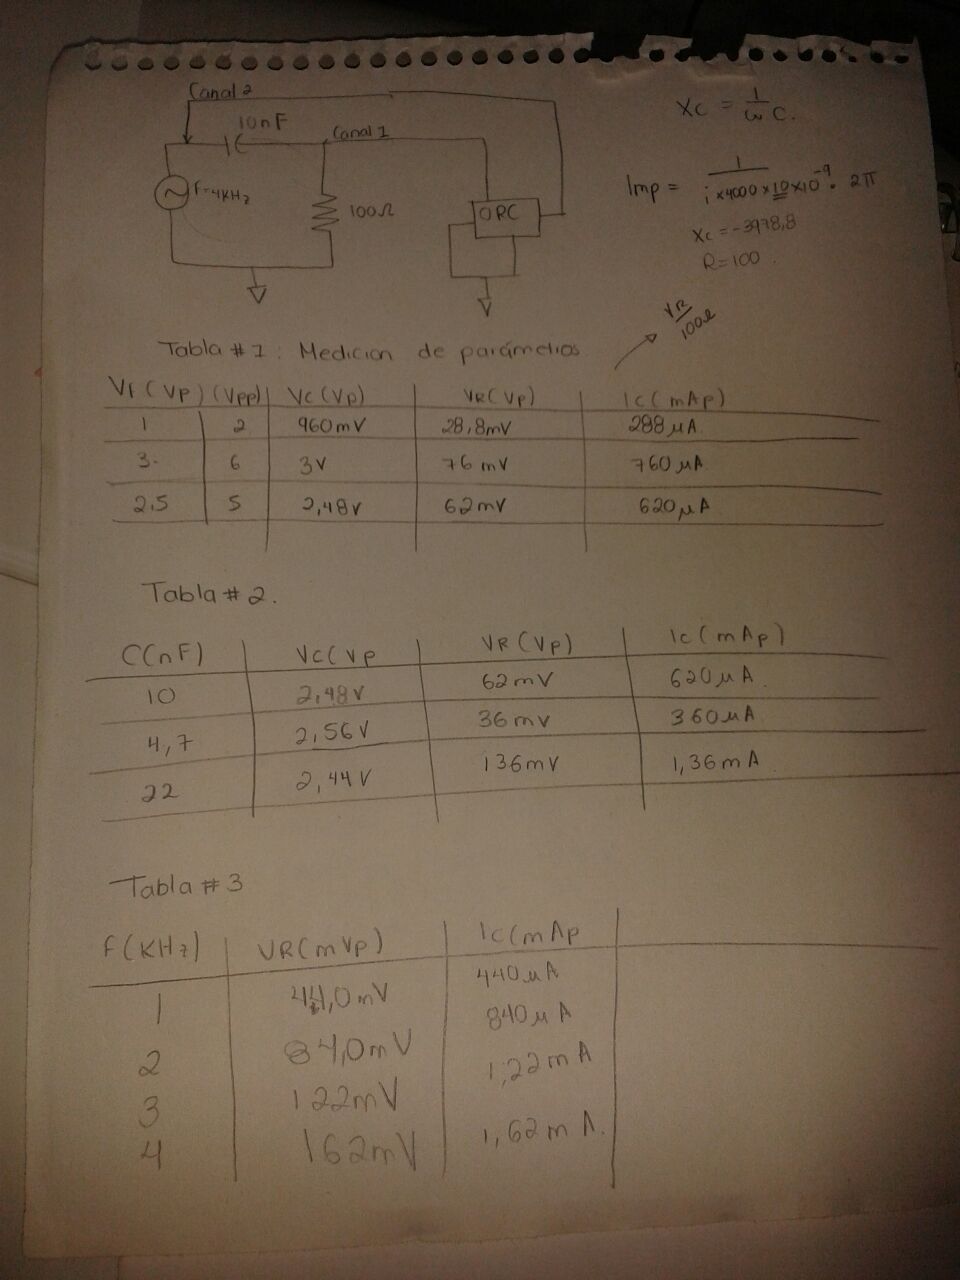 Canal 2
10nF
Canal 1
F=4KHz
100Ω
ORC
Xc = 1/ω C.
Imp = 1/i×4000×10×10⁻⁹• 2π
Xc = -3978,8
R=100
VR/100Ω
Tabla # 1 : Medicion de parámetros
Vf (Vp) (Vpp) Vc (Vp) VR (Vp) Ic (mAp)
1 2 960mV 28,8mV 288 μA
3 6 3V 76 mV 760 μA
2.5 5 2,48V 62mV 620 μA
Tabla # 2.
C(nF) Vc(Vp VR (Vp) Ic (mAp)
10 2,48V 62mV 620 μA
4,7 2,56V 36mV 360 μA
22 2,44V 136mV 1,36mA
Tabla # 3
F(KHz) VR(mVp) Ic(mAp
1 44,0mV 440 μA
2 84,0mV 840 μA
3 122mV 1,22mA
4 162mV 1,62mA.